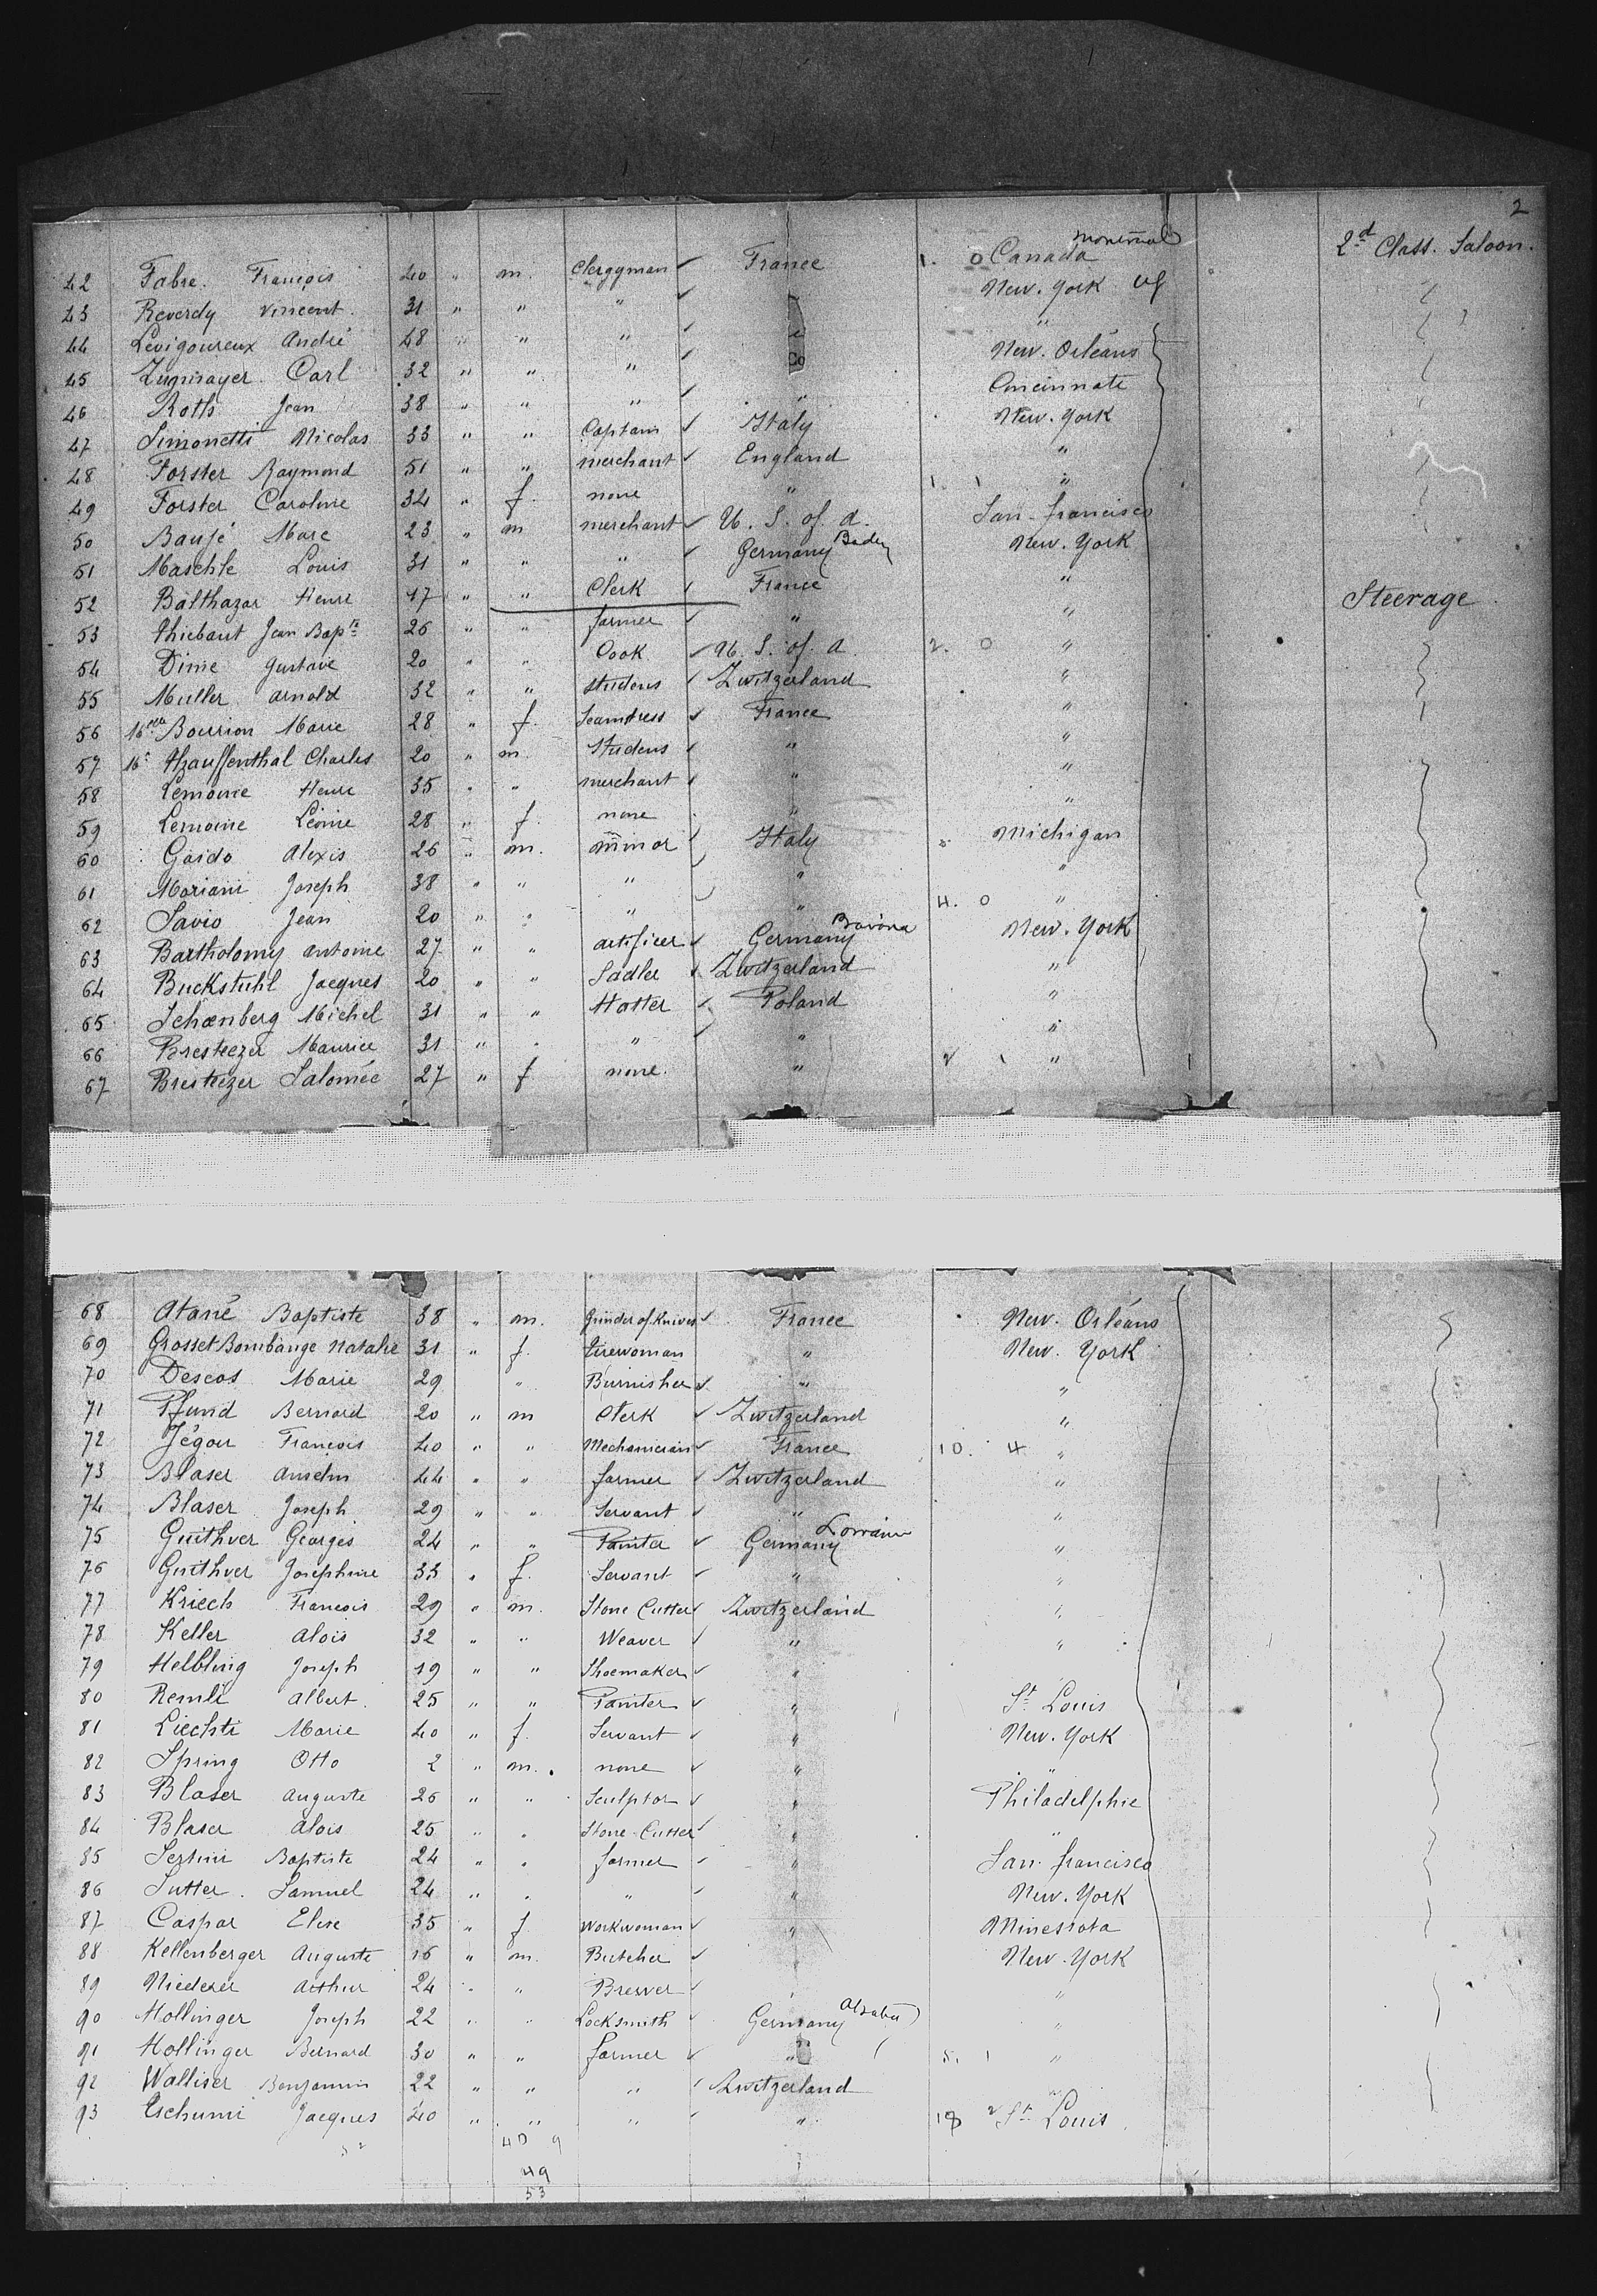 2
42 Fabre. François 40 " m. Clergyman ✓ France 1. 0 Canada Montreal 2d Class. Saloon.
43 Reverdy Vincent. 31 " " " ✓ New. York
44 Levigoureux André 48 " " " ✓ "
45 Zugmayer Carl 32 " " " ✓ New. Orléans
46 Roth Jean 38 " " " ✓ " Cincinnate
47 Simonetti Nicolas 33 " " Captain ✓ Italy New. York
48 Forster Raymond 51 " " merchant ✓ England "
49 Forster Caroline 34 " f. none " 1. 1 "
50 Baujé Marc 23 " m merchant ✓ U. S. of. a. San. francisco
51 Maschle Louis 31 " " " ✓ Germany Baden New. York
52 Balthazar Henri 17 " " Clerk ✓ France " Steerage
53 thiebaut Jean Bapte 26 " " farmer ✓ " "
54 Dime Gustave 20 " " Cook ✓ U. S. of. a 2. 0 "
55 Muller arnold 32 " " studens ✓ Zwitzerland "
56 Bourrion Marie 28 " f. Seamtress ✓ France "
57 thauffenthal Charles 20 " m. Studens ✓ " "
58 Lemoine Henri 35 " " merchant ✓ " "
59 Lemoine Léonie 28 " f. none " "
60 Gaido Alexis 26 " m. minor ✓ Italy Michigan
61 Mariani Joseph 38 " " " ✓ " "
62 Savio Jean 20 " " " ✓ " 4. 0 "
63 Bartholomy antoine 27 " " artificer ✓ Germany Bavaria New. York
64 Buckstuhl Jacques 20 " " Sadler ✓ Zwitzerland "
65 Schœnberg Michel 31 " " Hatter ✓ Poland "
66 Bresteezer Maurice 31 " " " ✓ " "
67 Bresteezer Salomée 27 " f none. " 2 1 "
68 Atané Baptiste 38 " m. Grinder of. Knives ✓ France New. Orléans
69 Grosset Bombange Natalie 31 " f. tirewoman " New. York
70 Descos Marie 29 " Burnisher ✓ " "
71 Pfund Bernard 20 " m Clerk ✓ Zwitzerland "
72 Jégou François 40 " " Mechanician ✓ France 10. 4 "
73 Blaser Anselm 44 " " farmer ✓ Zwitzerland "
74 Blaser Joseph 29 " " Servant ✓ " "
75 Guithver Georges 24 " " Painter ✓ Germany Lorraine "
76 Guithver Josephine 33 " f. Servant ✓ " "
77 Kriech François 29 " m. Stone Cutter ✓ Zwitzerland "
78 Keller Alois 32 " " Weaver ✓ " "
79 Helbling Joseph 19 " " Shoemaker ✓ "
80 Remli Albert. 25 " " Painter ✓ " St Louis
81 Liechti Marie 40 " f. Servant ✓ " New. York
82 Spring Otto 2 " m. none ✓ " "
83 Blaser Auguste 26 " " Sculptor ✓ " Philadelphie
84 Blaser Alois 25 " " Stone-Cutter ✓ " "
85 Sertini Baptiste 24 " " farmer ✓ " San. francisco
86 Sutter. Samuel 24 " " " ✓ " New. York
87 Caspar Elise 35 " f workwoman ✓ " Minesota
88 Kellenberger Auguste 16 " m. Butcher ✓ New. York
89 Niederer Arthur 24 " " Brewer ✓ "
90 Hollinger Joseph 22 " " Locksmith Germany "
91 Hollinger Bernard 30 " " farmer ✓ " 5. 1 "
92 Walliser Benjamin 22 " " " ✓ Zwitzerland "
93 Eschumi Jacques 40 " " " ✓ " 18 2 St Louis.
40 9
49
53